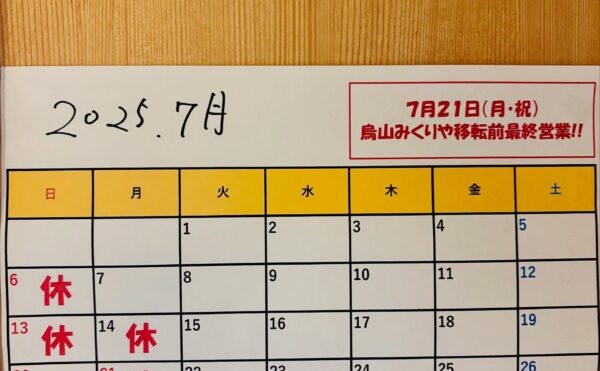 2025.7月
7月21日(月・祝)
烏山みくりや移転前最終営業!!
日 月 火 水 木 金 土
1 2 3 4 5
6 休 7 8 9 10 11 12
13 休 14 休 15 16 17 18 19
21 22 23 24 25 26